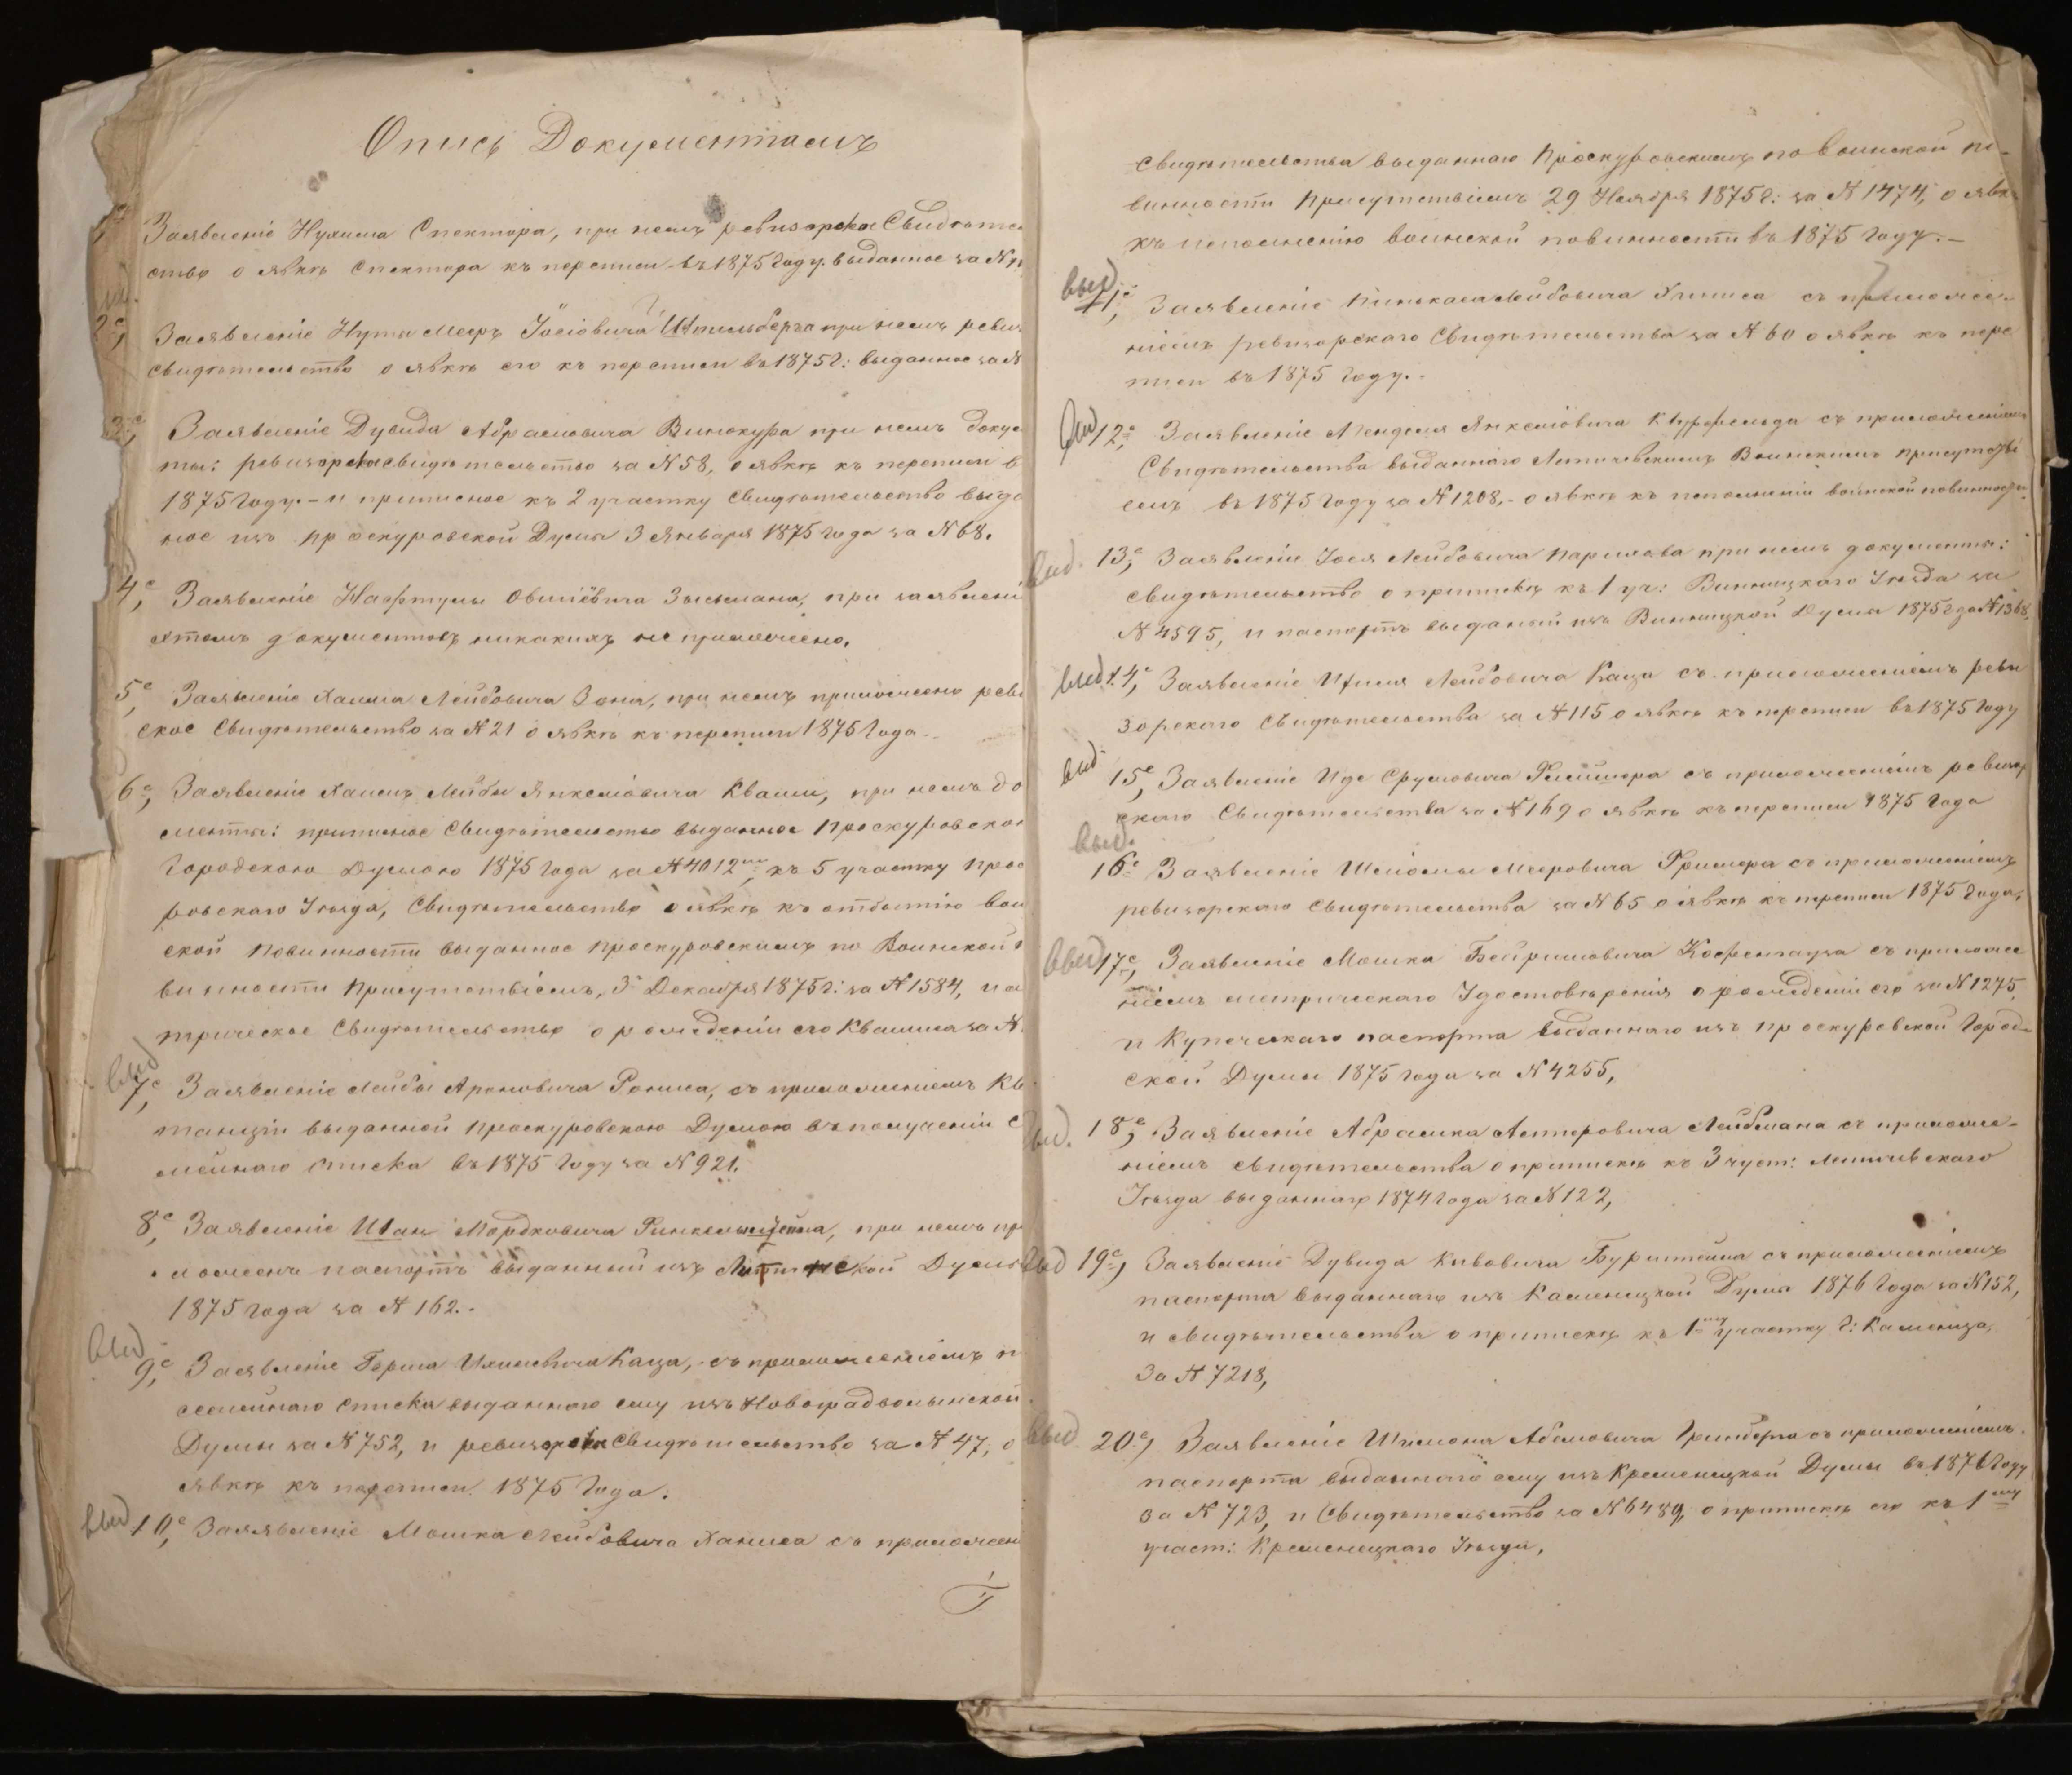 Опись Документамъ
Заявленіе Нухима Спектора, при немъ ревизорска Свидѣтел
ство о явкѣ Спектора къ переписи въ 1875 году. выданное за №
2е, Заявленіе Нута Меера Іосіовича Штильберга при немъ ревиз
свидѣтельство о явкѣ его къ переписи въ 1875 г: выданное за №
3е, Заявленіе Дувида Абрамовича Винокура при немъ докум
ты: ревизорска свидѣтельство за № 58, о явкѣ къ переписи в
1875 году. – и приписное къ 2 участку свидѣтельство выда
ное изъ Проскуровской Думы 3 Января 1875 года за № 68.
4е, Заявленіе Нафтулы Овшіевича Зысмана, при заявлені
этомъ документовъ никакихъ не приложено.
5е, Заявленіе Хаима Лейбовича Зона, при немъ приложено реви
ское Свидѣтельство за № 21 о явкѣ къ переписи 1875 года.
6е, Заявленіе Хаимъ Лейбы Янкеліовича Кваши, при немъ до
менты: приписное Свидѣтельство выданное Проскуровско
Городскою Думою 1875 года за № 4012, къ 5 участку Прос
ровскаго Уѣзда, Свидѣтельство о явкѣ къ отбытію вои
ской повинности выданное Проскуровскимъ по Воинской
винности Присутствіемъ, 3 Декабря 1875 г: за № 1584, и м
трическое Свидѣтельство о рожденіи его за №
выд
7е, Заявленіе Лейбы Ароновича Рониса, съ приложеніемъ кв
танціи выданной Проскуровскою Думою въ полученіи С
мейнаго списка въ 1875 году за № 921.
8е, Заявленіе Мордковича Финкельштейна, при немъ пр
ложенъ паспортъ выданный изъ Думы
1875 года за № 162.
выд
9е, Заявленіе Герша Каца, съ приложеніемъ п
семейнаго списка выданнаго ему изъ Новоградволынской
Думы за № 752, и ревизорска Свидѣтельство за № 47, о
явкѣ къ переписи 1875 года.
выд 10е, Заявленіе Мошка Лейбовича Ханиса съ приложен
свидѣтельства выданнаго Проскуровскимъ по воинской по-
винности Присутствіемъ 29 Ноября 1875 г: за № 1474, о явк
къ исполненію воинской повинности въ 1875 году. –
выд
11е, Заявленіе Пинькаса Лейбовича съ приложе-
ніемъ ревизорскаго Свидѣтельства за № 60 о явкѣ къ пере
писи въ 1875 году. -
выд 12е, Заявленіе Менделя Янкеліовича съ приложеніемъ
Свидѣтельства выданнаго Летичевскимъ Воинскимъ присутстві
емъ въ 1875 году за № 1208, – о явкѣ къ исполненіи воинской повинности.
выд. 13е, Заявленіи Іося Лейбовича при немъ документы:
свидѣтельство о припискѣ къ 1 уч: Винницкаго Уѣзда за
№ 4595, и паспортъ выданый изъ Винницкой Думы 1875 года № 1368,
выд 14е, Заявленіе Лейбовича Каца съ приложеніемъ реви
зорскаго Свидѣтельства за № 115 о явкѣ къ переписи въ 1875 году
выд 15е, Заявленіе Иде Сруловича Флейшера съ приложеніемъ ревизор
скаго Свидѣтельства за № 169 о явкѣ къ переписи 1875 года
выд.
16е Заявленіе Шліомы Мееровича съ приложеніемъ
ревизорскаго Свидѣтельства за № 65 о явкѣ къ переписи 1875 года,
выд 17е, Заявленіе Мошка съ приложе
ніемъ метрическаго Удостовѣренія о рожденіи его за № 1275
и Купеческаго паспорта выданнаго изъ Проскуровской Город-
ской Думы 1875 года за № 4255,
выд. 18е, Заявленіе Абрамка Лейбмана съ приложе-
ніемъ свидѣтельства о припискѣ къ 3 участ: Летичевскаго
Уѣзда выданнаго 1874 года за № 122,
выд 19е, Заявленіе Дувида Кивовича Бурштейна съ приложеніемъ
паспорта выданнаго изъ Каменецкой Думы 1876 года за № 152,
и свидѣтельства о припискѣ къ 1му участку г: Каменца,
За № 7218,
выд 20е, Заявленіе Шимона Абелиовича Гринберга съ приложеніемъ
паспорта выданнаго ему изъ Кременецкой Думы въ 1876 году
за № 723, и Свидѣтельство за № 6489, о припискѣ его къ 1му
участ: Кременецкаго Уѣзда,